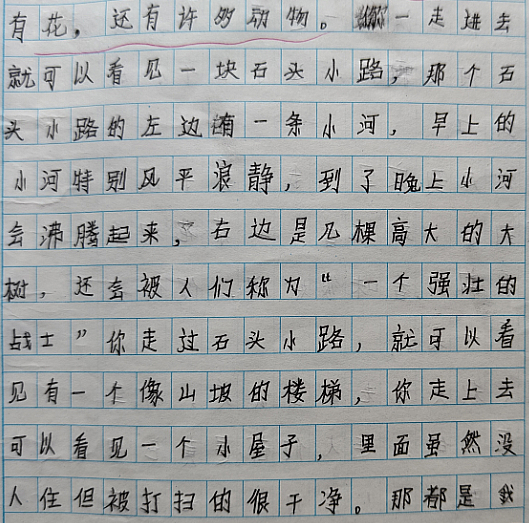 有花，还有许多动物。你一走进去
就可以看见一块石头小路，那个石
头小路的左边有一条小河，早上的
小河特别风平浪静，到了晚上小河
会沸腾起来，右边是几棵高大的大
树，还会被人们称为“一个强壮的
战士”你走过石头小路，就可以看
见有一个像山坡的楼梯，你走上去
可以看见一个小屋子，里面虽然没
人住但被打扫的很干净。那都是我